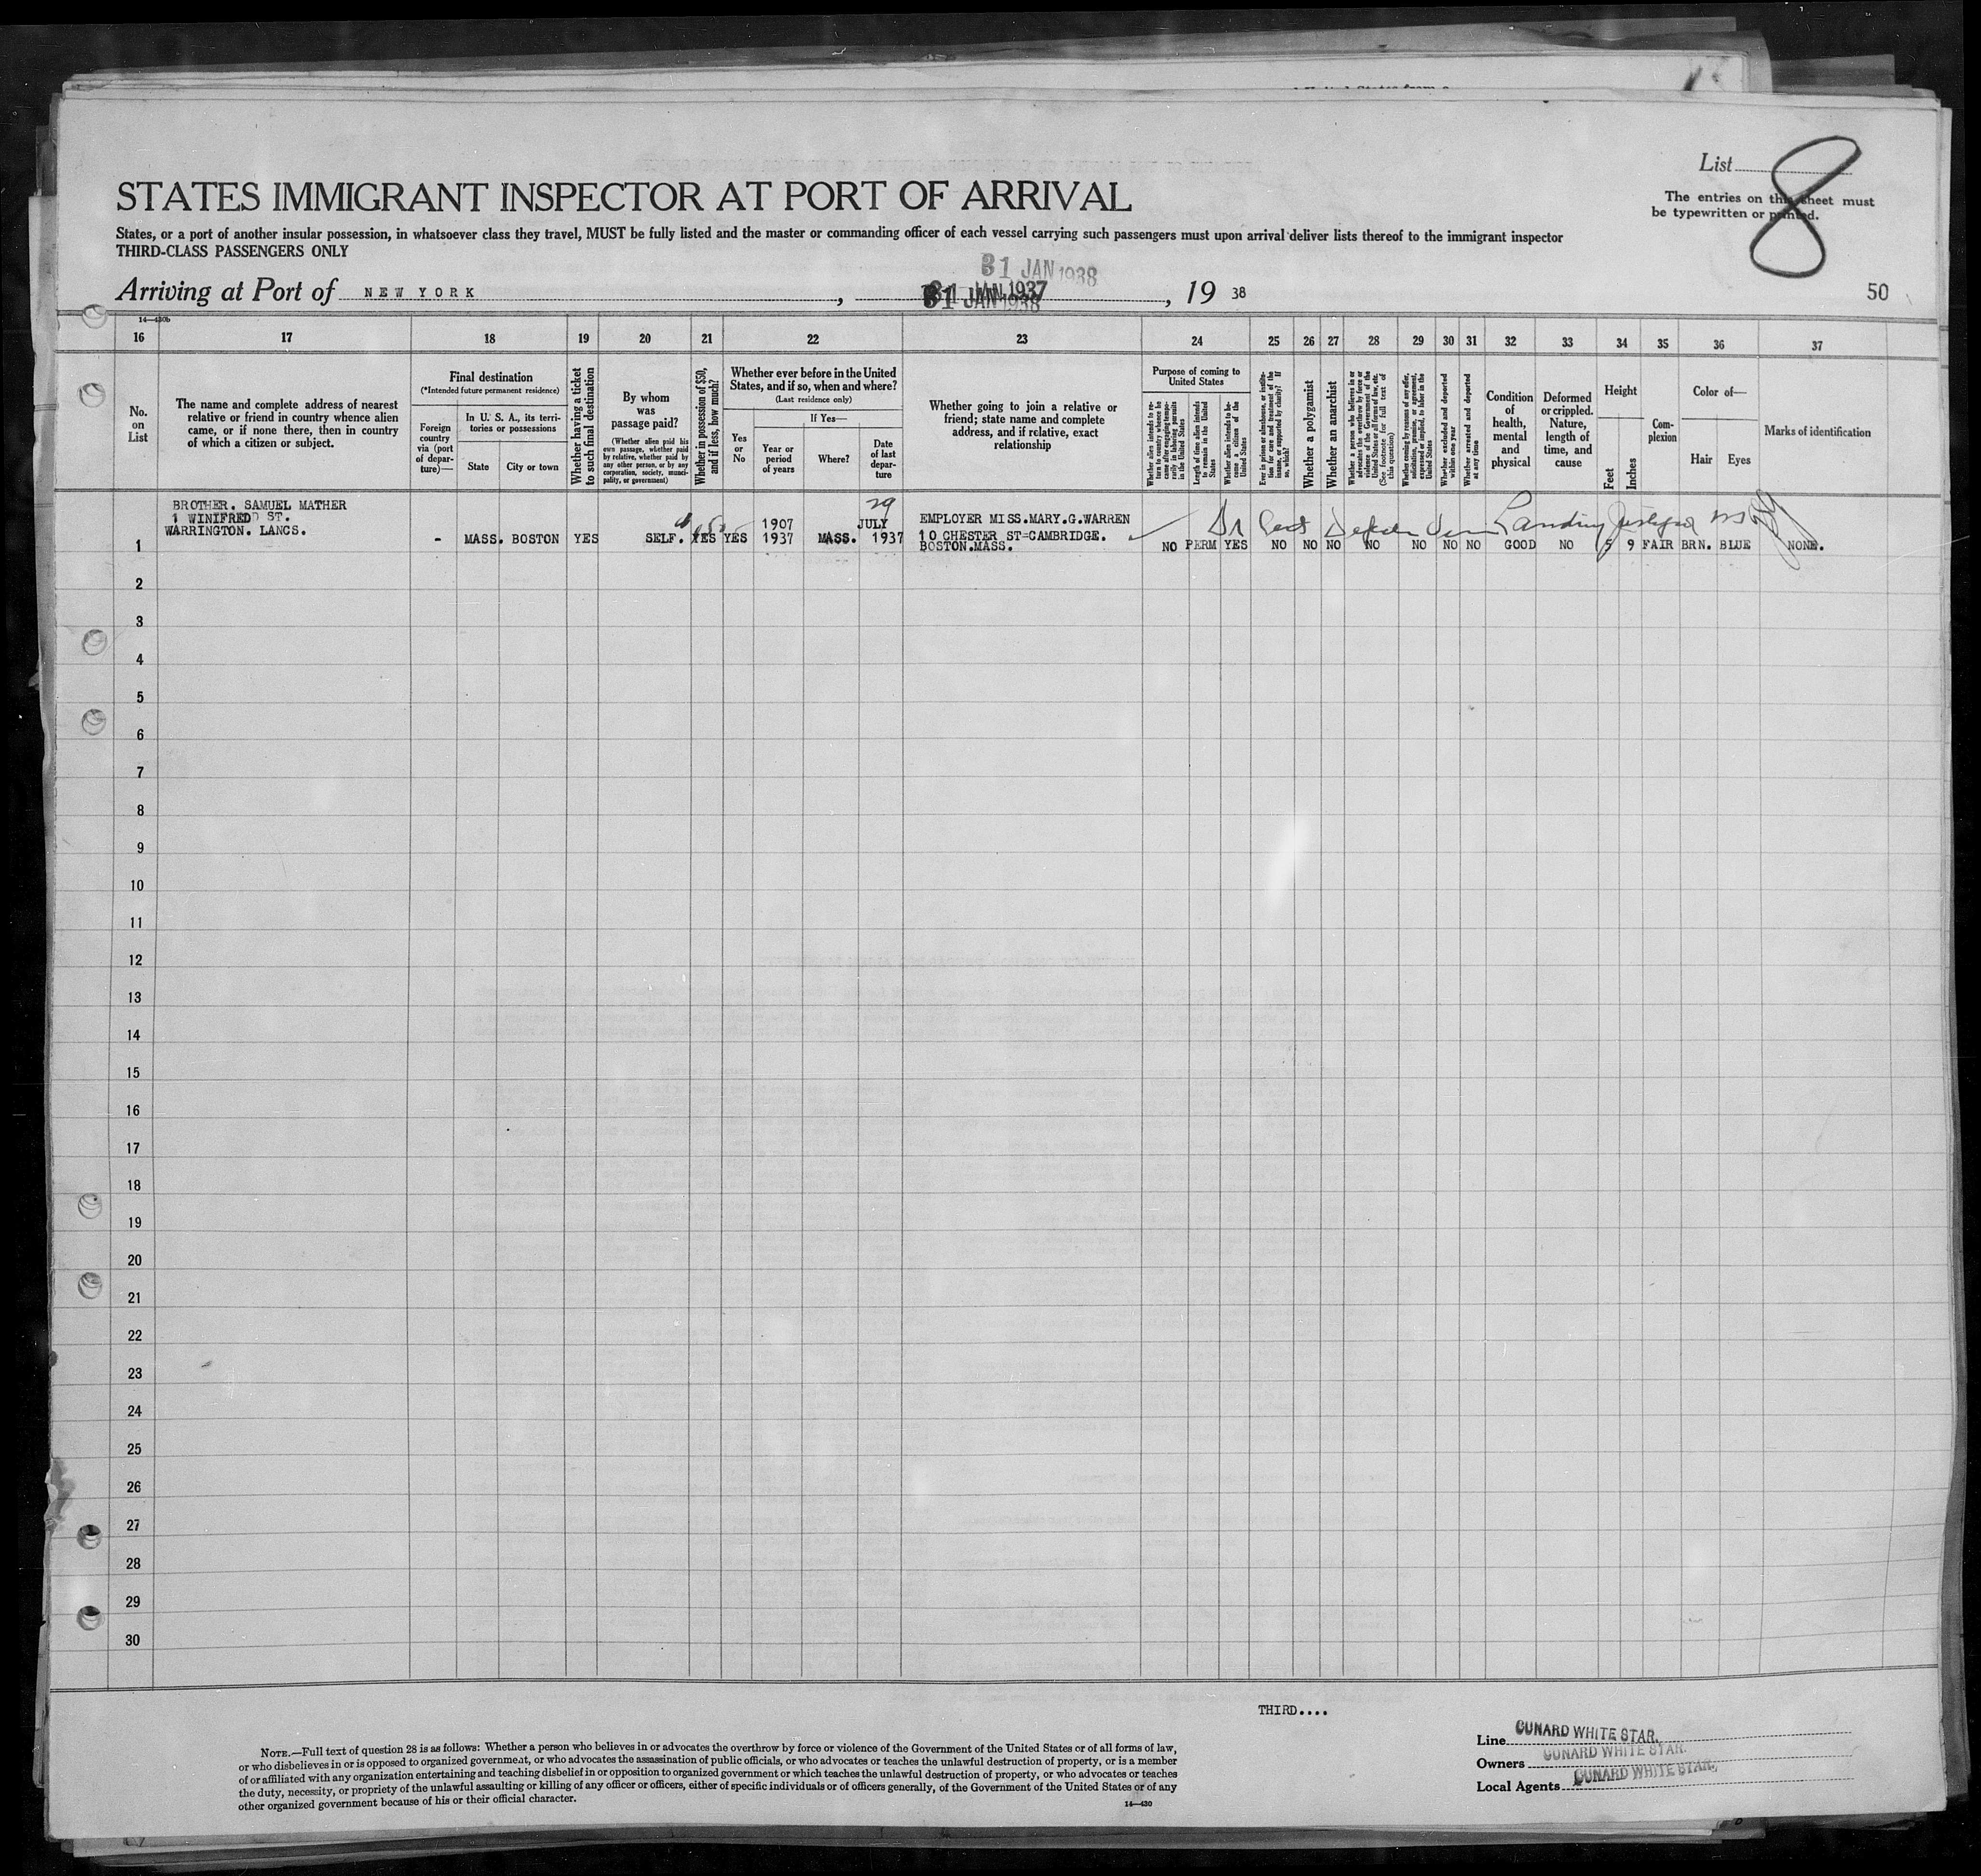 List
8
The entries on this sheet must
be typewritten or printed.
STATES IMMIGRANT INSPECTOR AT PORT OF ARRIVAL
States, or a port of another insular possession, in whatsoever class they travel, MUST be fully listed and the master or commanding officer of each vessel carrying such passengers must upon arrival deliver lists thereof to the immigrant inspector
THIRD-CLASS PASSENGERS ONLY
31 JAN 1938
Arriving at Port of NEW YORK, 31 JAN 1937, 19 38
31 JAN 1938
50
14—430b
16 17 18 19 20 21 22 23 24 25 26 27 28 29 30 31 32 33 34 35 36 37
No.
on
List
The name and complete address of nearest
relative or friend in country whence alien
came, or if none there, then in country
of which a citizen or subject.
Final destination
(*Intended future permanent residence)
Foreign
country
via (port
of depar-
ture)—
In U. S. A., its terri-
tories or possessions
State
City or town
Whether having a ticket
to such final destination
By whom
was
passage paid?
(Whether alien paid his
own passage, whether paid
by relative, whether paid by
any other person, or by any
corporation, society, munici-
pality, or government)
Whether in possession of $50,
and if less, how much?
Whether ever before in the United
States, and if so, when and where?
(Last residence only)
Yes
or
No
If Yes—
Year or
period
of years
Where?
Date
of last
depar-
ture
Whether going to join a relative or
friend; state name and complete
address, and if relative, exact
relationship
Purpose of coming to
United States
Whether alien intends to re-
turn to country whence he
came after engaging tempo-
rarily in laboring pursuits
in the United States
Length of time alien intends
to remain in the United
States
Whether alien intends to be-
come a citizen of the
United States
Ever in prison or almshouse, or institu-
tion for care and treatment of the
insane, or supported by charity? If
so, which?
Whether a polygamist
Whether an anarchist
Whether a person who believes in or
advocates the overthrow by force or
violence of the Government of the
United States or all forms of law, etc.
(See footnote for full text of
this question)
Whether coming by reasons of any offer,
solicitation, promise, or agreement,
expressed or implied, to labor in the
United States
Whether excluded and deported
within one year
Whether arrested and deported
at any time
Condition
of
health,
mental
and
physical
Deformed
or crippled.
Nature,
length of
time, and
cause
Height
Feet
Inches
Com-
plexion
Color of—
Hair
Eyes
Marks of identification
BROTHER. SAMUEL MATHER
1 WINIFRED ST.
WARRINGTON. LANCS.
1 - MASS. BOSTON YES SELF. YES YES
1907
1937
MASS.
29
JULY
1937
EMPLOYER MISS.MARY.G.WARREN
10 CHESTER ST=CAMBRIDGE.
BOSTON.MASS.
Landing
NO PERM YES NO NO NO NO NO NO NO GOOD NO 5 9 FAIR BRN. BLUE NONE.
2
3
4
5
6
7
8
9
10
11
12
13
14
15
16
17
18
19
20
21
22
23
24
25
26
27
28
29
30
THIRD....
NOTE.—Full text of question 28 is as follows: Whether a person who believes in or advocates the overthrow by force or violence of the Government of the United States or of all forms of law,
or who disbelieves in or is opposed to organized government, or who advocates the assassination of public officials, or who advocates or teaches the unlawful destruction of property, or is a member
of or affiliated with any organization entertaining and teaching disbelief in or opposition to organized government or which teaches the unlawful destruction of property, or who advocates or teaches
the duty, necessity, or propriety of the unlawful assaulting or killing of any officer or officers, either of specific individuals or of officers generally, of the Government of the United States or of any
other organized government because of his or their official character.
14—430
Line CUNARD WHITE STAR.
Owners CUNARD WHITE STAR.
Local Agents CUNARD WHITE STAR.